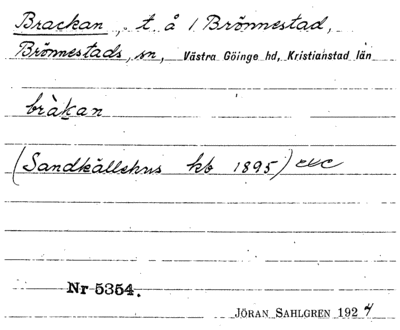 Brackan, t. å 1 Brönnestad,
Brönnestads, sn, Västra Göinge hd, Kristianstad län
bràkan
(Sandkällehus kb 1895)
Nr 5354.
JÖRAN SAHLGREN 1924